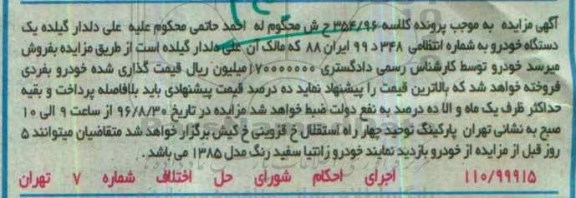 آگهی مزایده به موجب پرونده کلاسه ۳۵۴/۹۶ ح ش محکوم له احمد حاتمی محکوم علیه علی دلدار گیلده یک
دستگاه خودرو به شماره انتظامی ۳۴۸ د ۹۹ ایران ۸۸ که مالک ان علی دلدار گیلده است از طریق مزایده بفروش
میرسد خودرو توسط کارشناس رسمی دادگستری ۱۷۰۰۰۰۰۰۰میلیون ریال قیمت گذاری شده خودرو بفردی
فروخته خواهد شد که بالاترین قیمت را پیشنهاد نماید ده درصد قیمت پیشنهادی باید بلافاصله پرداخت و بقیه
حداکثر ظرف یک ماه و الا ده درصد به نفع دولت ضبط خواهد شد مزایده در تاریخ ۹۶/۸/۳۰ از ساعت ۹ الی ۱۰
صبح به نشانی تهران پارکینگ توحید چهار راه استقلال خ قزوینی خ کیش برگزار خواهد شد متقاضیان میتوانند ۵
روز قبل از مزایده از خودرو بازدید نمایند خودرو زانتیا سفید رنگ مدل ۱۳۸۵ می باشد.
۱۱۰/۹۹۹۱۵ اجرای احکام شورای حل اختلاف شماره ۷ تهران